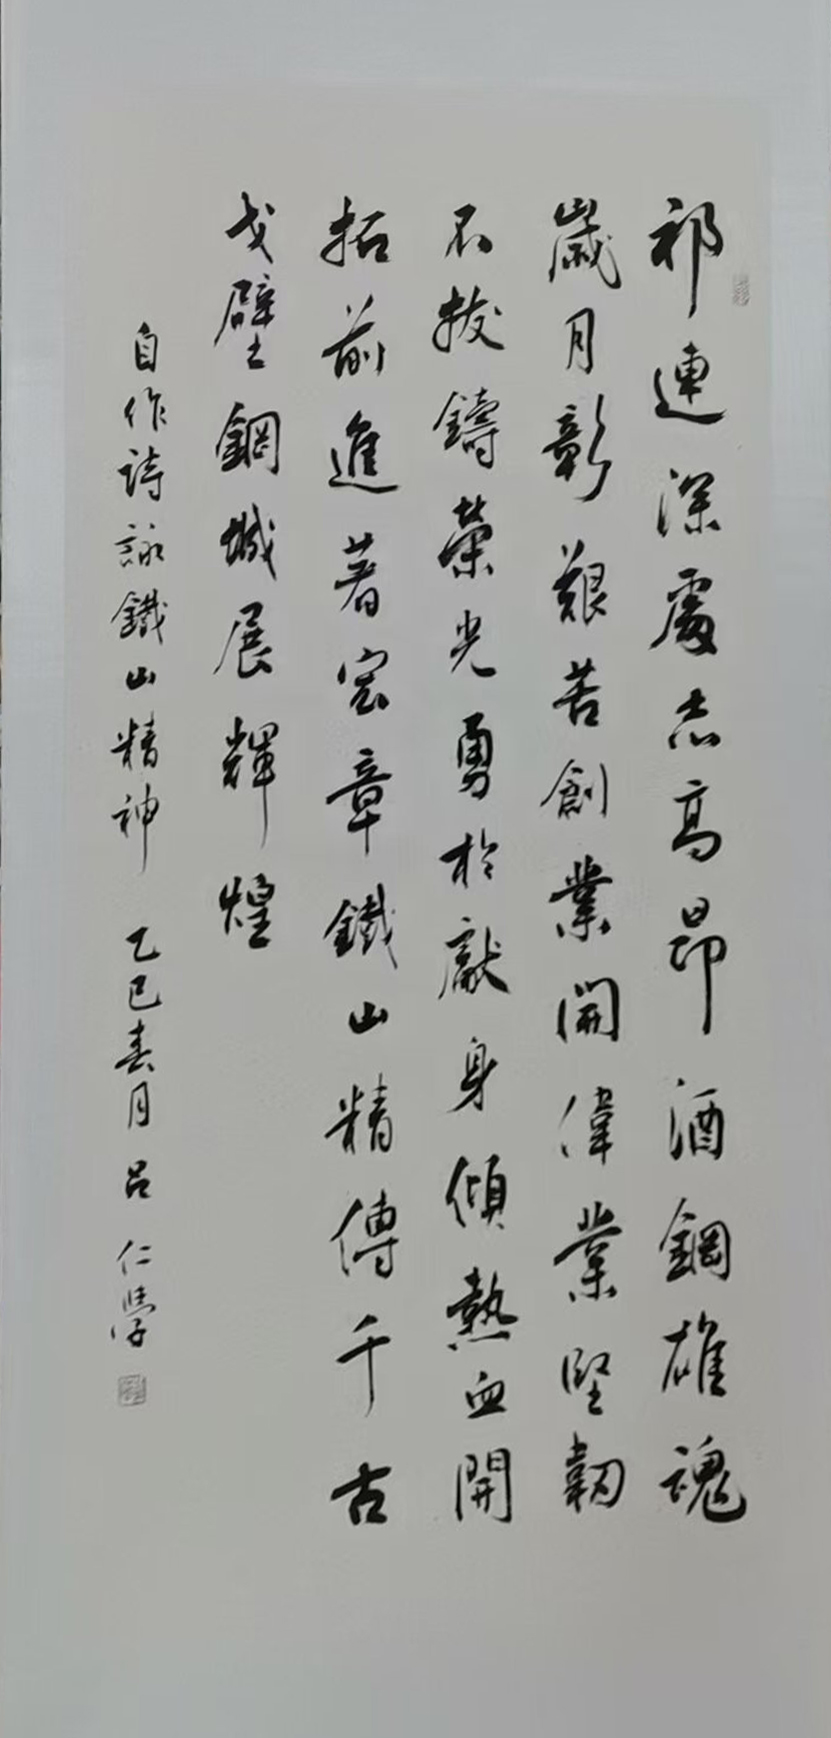 祁連深處志高昂酒鋼雄魂
歲月彰艱苦創業開偉業堅韌
不拔鑄榮光勇於獻身傾熱血開
拓前進著宏章鐵山精傳千古
戈壁鋼城展輝煌
自作詩詠鐵山精神 乙巳春月 呂仁學